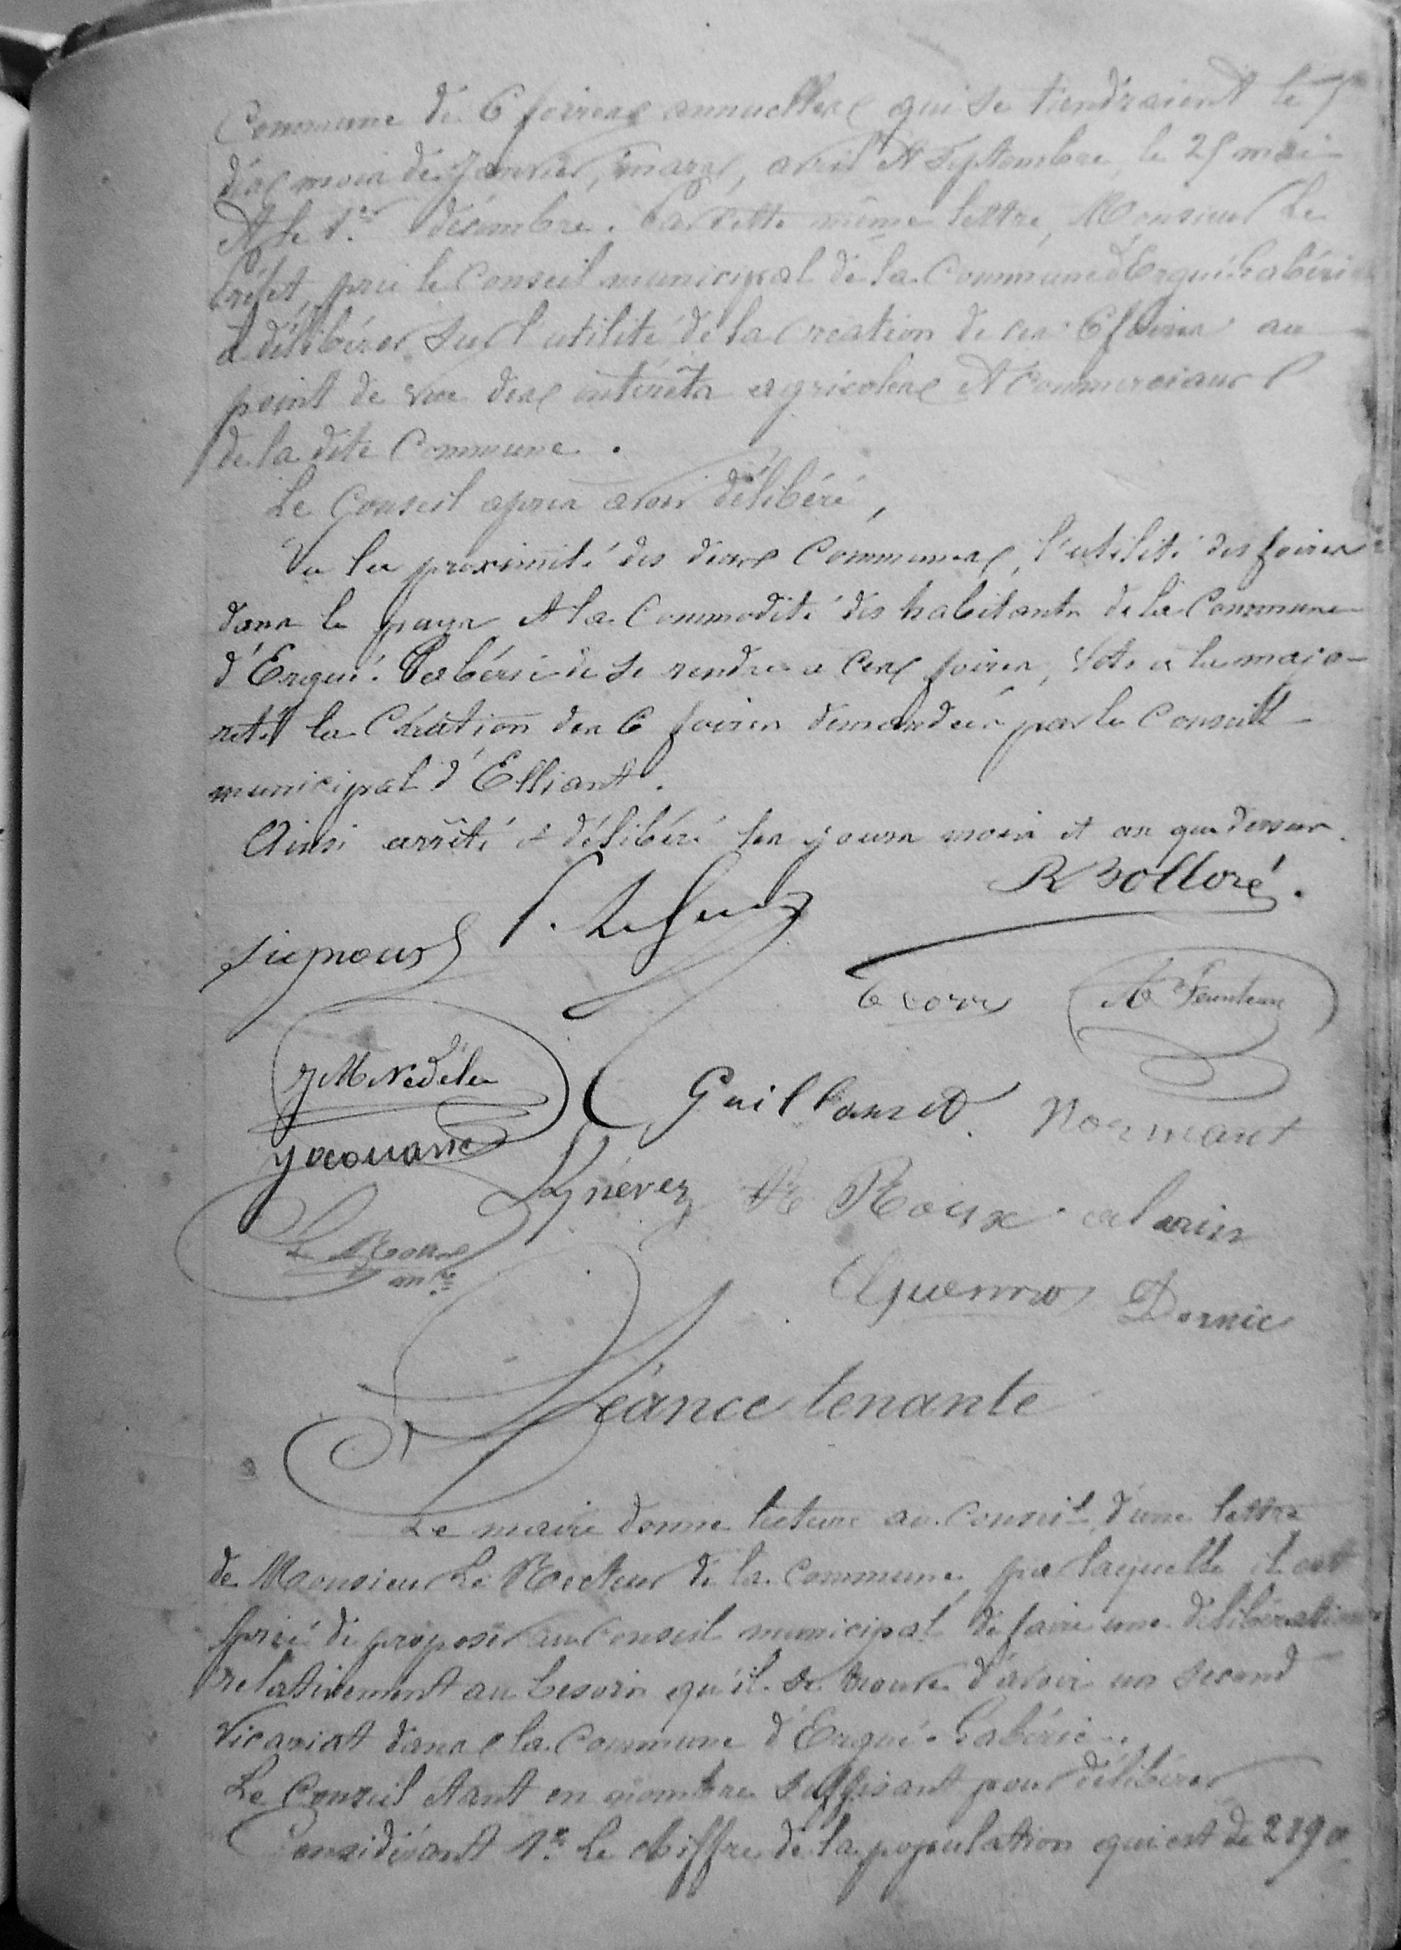 Commune de 6 foires annuelles qui se tiendraient le
des mois de Janvier, mars, avril et Septembre, le 25 mai
et le 1er décembre. Par cette même lettre, Monsieur le
Préfet, prie le Conseil municipal de la Commune d'Ergué-Gabéric
à délibérer sur l'utilité de la création de ces 6 foires au
point de vue des intérêts agricoles et commerciaux
de la dite Commune.
Le Conseil après avoir délibéré,
Vu la proximité des deux Communes, l'utilité des foires
dans le pays et la Commodité des habitants de la Commune
d'Ergué-Gabéric de se rendre à ces foires, Vote à la majo-
rité la Création des 6 foires demandées par le Conseil
municipal d'Elliant.
Ainsi arrêté et délibéré les jours mois et an que dessus.
R Bolloré.
Signour
Le Corre
JM Nédélec
Guillamet
Normant
Y Laouanc
Kgnévez
Le Roux alain
Le Roux
Quéméré
Dornic
Séance tenante
Le maire donne lecture au Conseil, d'une lettre
de Monsieur Le Recteur de la Commune, par laquelle il est
prié de proposer au Conseil municipal de faire une délibération
relativement au besoin qu'il se trouve d'avoir un second
Vicariat dans la Commune d'Ergué-Gabéric.
Le Conseil étant en nombre suffisant pour délibérer
Considérant 1° le chiffre de la population qui est de